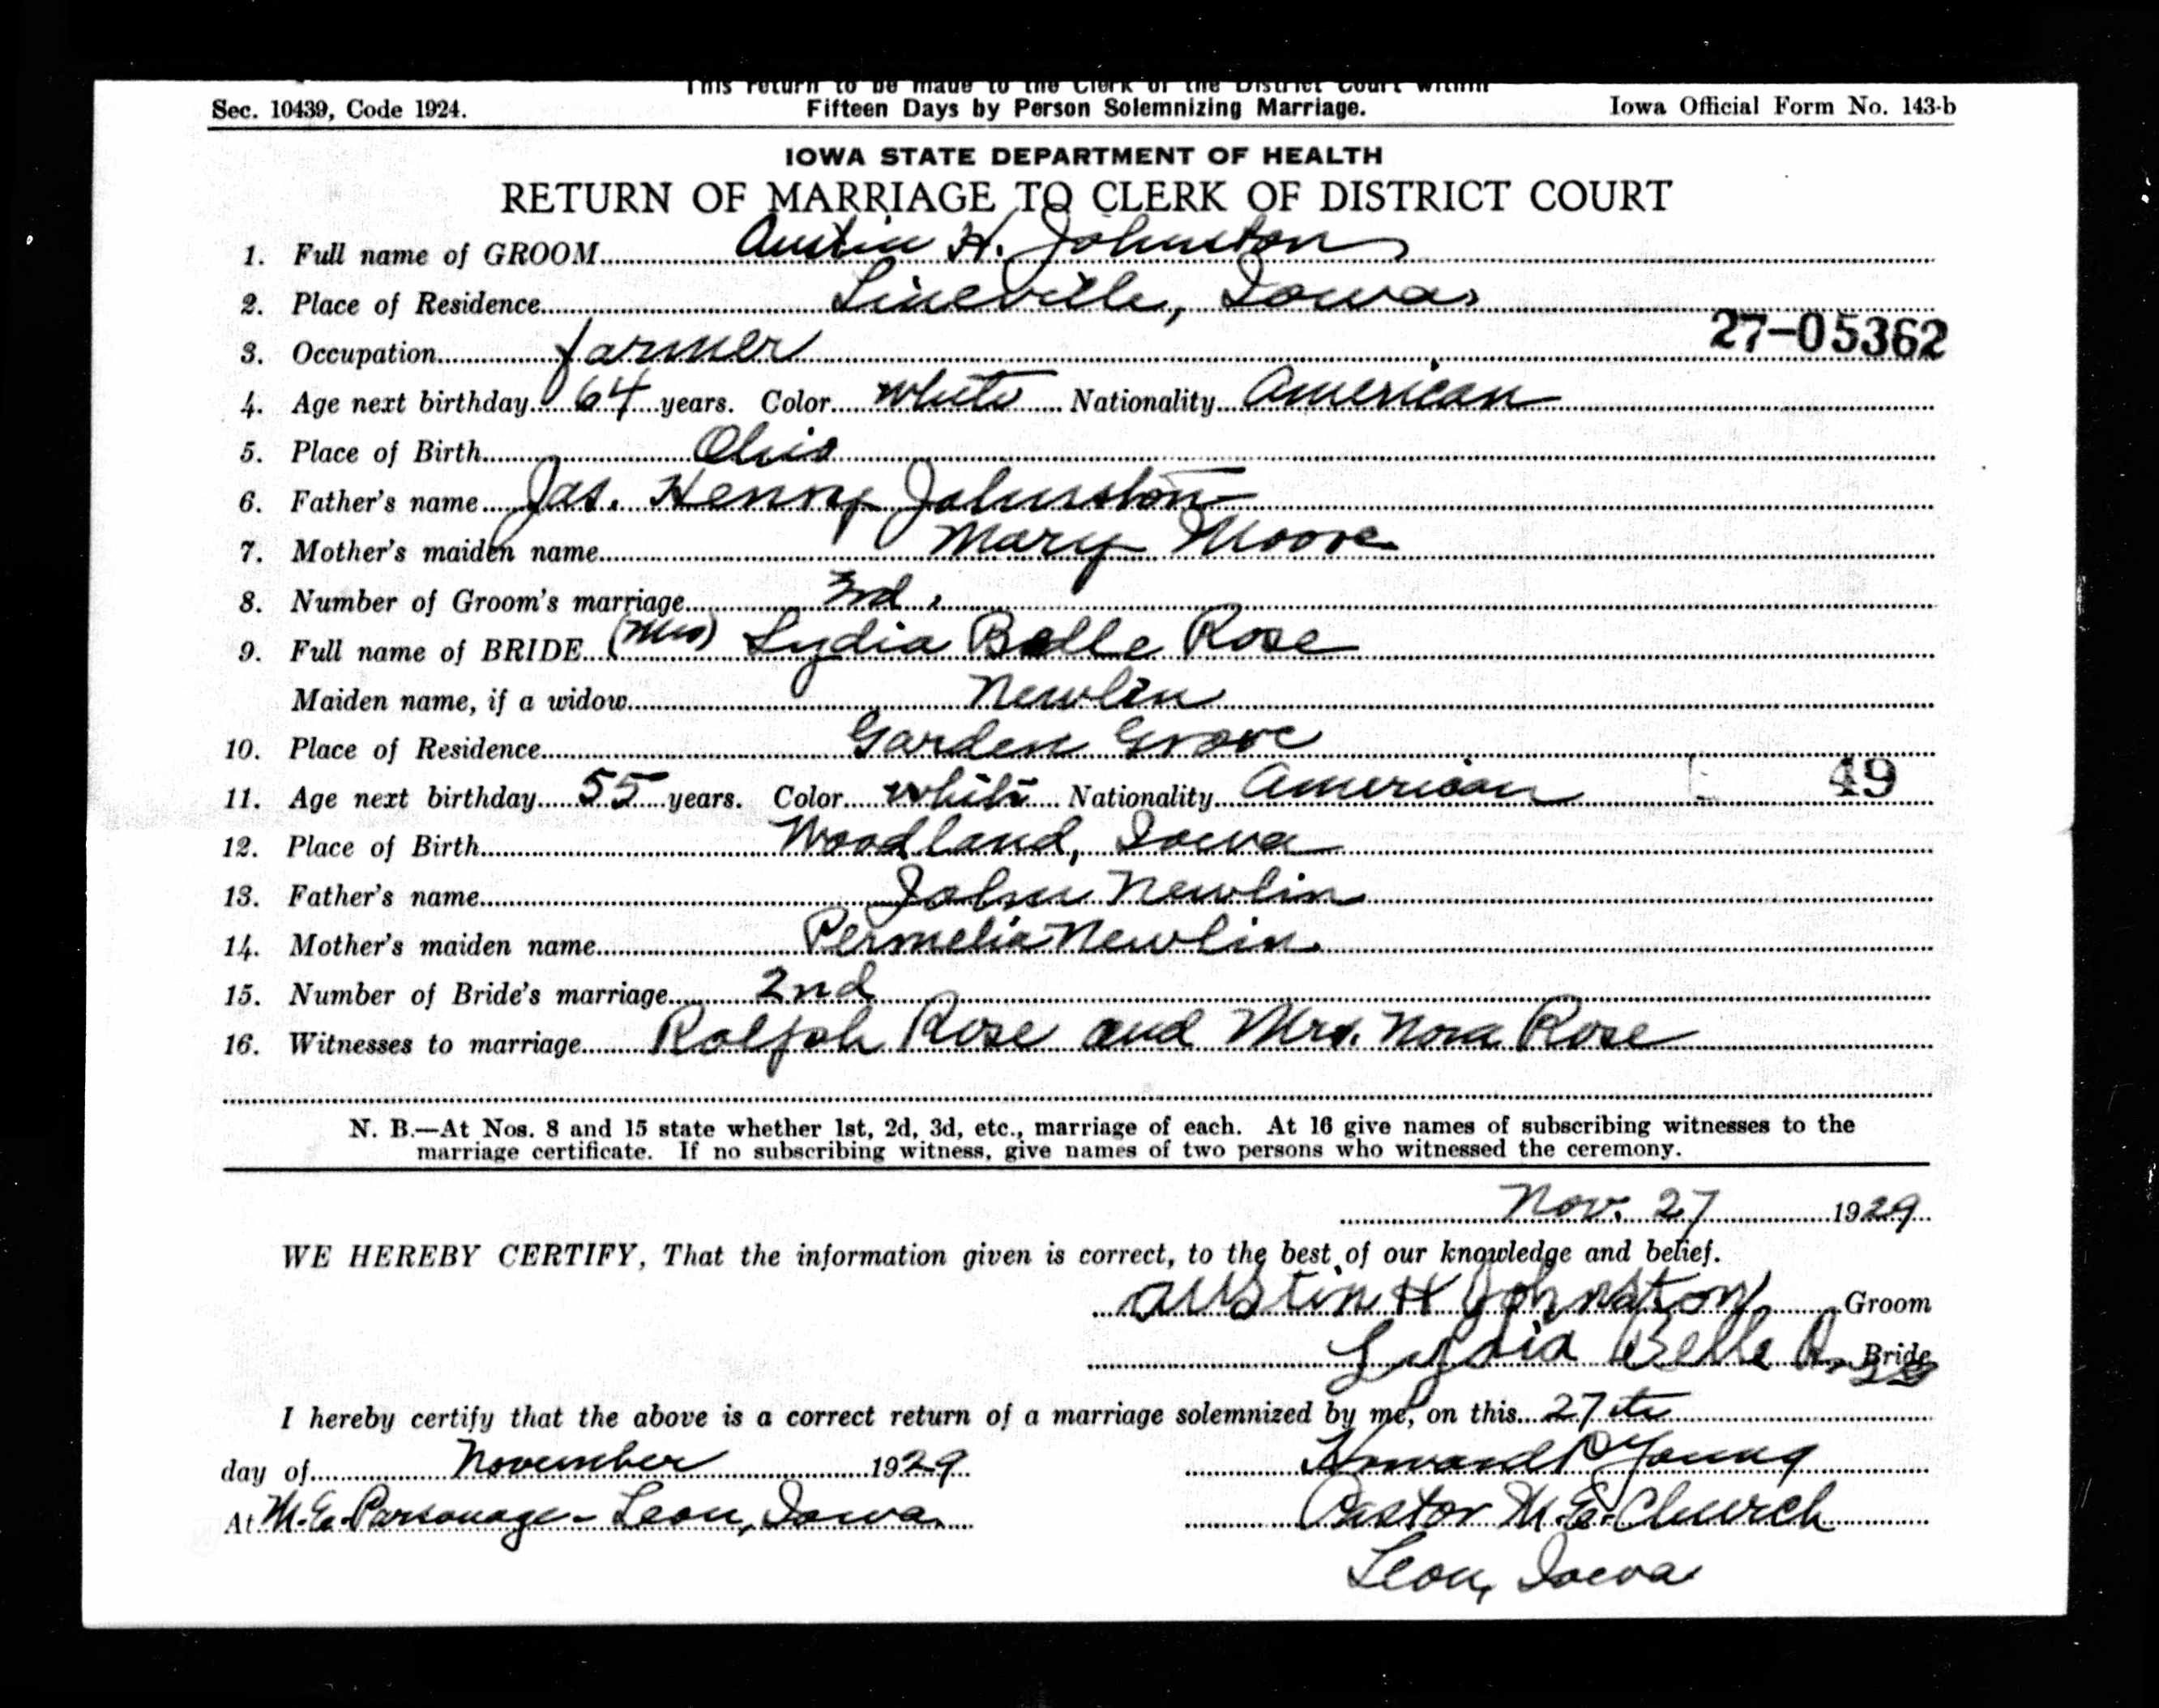 This return to be made to the Clerk of the District Court within
Sec. 10439, Code 1924. Fifteen Days by Person Solemnizing Marriage. Iowa Official Form No. 143-b
IOWA STATE DEPARTMENT OF HEALTH
RETURN OF MARRIAGE TO CLERK OF DISTRICT COURT
1. Full name of GROOM Austin H. Johnston
2. Place of Residence Lineville, Iowa
27-05362
3. Occupation farmer
4. Age next birthday 64 years. Color white Nationality American
5. Place of Birth Ohio
6. Father's name Jas. Henry Johnston
7. Mother's maiden name Mary Moore
8. Number of Groom's marriage 3rd.
9. Full name of BRIDE (Mrs) Lydia Belle Rose
Maiden name, if a widow Newlin
10. Place of Residence Garden Grove
11. Age next birthday 55 years. Color white Nationality American 49
12. Place of Birth Woodland, Iowa
13. Father's name John Newlin
14. Mother's maiden name Permelia Newlin.
15. Number of Bride's marriage 2nd
16. Witnesses to marriage Ralph Rose and Mrs. Nora Rose
N. B.—At Nos. 8 and 15 state whether 1st, 2d, 3d, etc., marriage of each. At 16 give names of subscribing witnesses to the
marriage certificate. If no subscribing witness, give names of two persons who witnessed the ceremony.
Nov. 27 1929
WE HEREBY CERTIFY, That the information given is correct, to the best of our knowledge and belief.
Austin H Johnston Groom
Lydia Belle Rose Bride
I hereby certify that the above is a correct return of a marriage solemnized by me, on this 27th
day of November 1929 Howard P Young
At M.E. Parsonage - Leon, Iowa. Pastor M.E. Church
Leon, Iowa